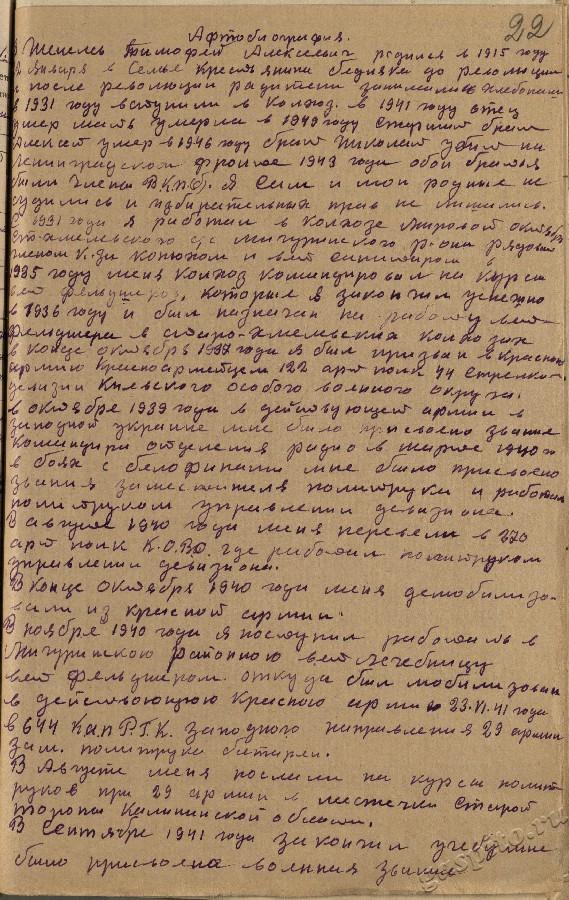 22
Афтобиография.
Я Шепель Тимофей Алексеевич родился в 1915 году
января в Семье крестьянина бедняка до революции
и после революции радители занимались Хлебопаш
в 1931 году вступили в Колхоз. в 1941 году отец
умер мать умерла в 1949 году Старший брат
Алексей умер в 1946 году брат Николай убит на
Ленинградском фронте 1943 года обои братья
были члены ВКП(б). Я Сам и мои родные не
судились и избирательных прав не лишались.
1931 года я работал в колхозе Мировой октябрь
Ст-хмелевского с/с Мичуринского р-она рядовым
членом К-за конюхом и вет санитаром в
1935 году меня Колхоз командировал на курсы
вет фельдшеров, которые я закончил успешно
в 1936 году и был назначен на работу вет-
фельдшера в старо-хмелевских колхозах
в конце октября 1937 года я был призван в красною
армию красноармейцем 122 арт полк 44 стрелко-
девизии Киевского особого военного округа.
в октябре 1939 года в действующей армии в
западной украине мне было присвоено звание
командира отделения радио в марте 1940 г
в боях с белофинами мне было присвоено
звания заместителя политрука и работал
политруком управлении девизиона.
В августе 1940 года меня перевели в 270
арт полк К.О.В.О. где работал политруком
управлении девизиона.
В конце Октября 1940 года меня демобилизо-
вали из красной армии.
В ноябре 1940 года я поступил работать в
Мичуринскою районною вет лечебницу
вет фельдшером. откуда был мобилизован
в действоющюю красною армию 23.VI.41 года
в 644 Кап Р.Г.К. западного направления 29 армии
зам. политрука батареи.
В Августе меня послали на курсы полит
руков при 29 армии в местечки Старой
торопы Калининской области.
В Сентябре 1941 года закончил учебу мне
было присвоена военная звание
gaspito.ru